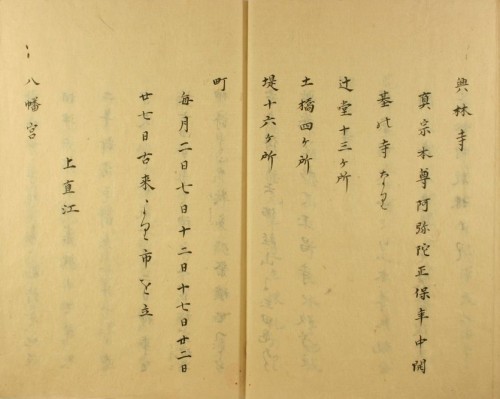 興林寺
真宗本尊阿弥陀正保年中開
基の寺なり
辻堂十三ヶ所
土橋四ヶ所
堤十六ヶ所
町
毎月二日七日十二日十七日廿二日
廿七日古来より市を立
上直江
八幡宮